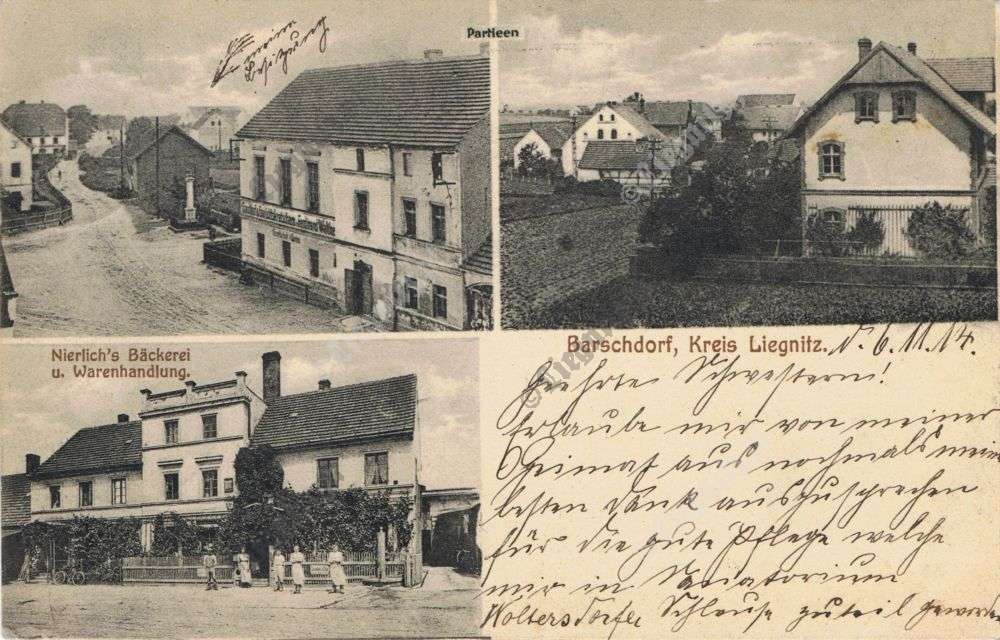 Partieen
meine
Besitzung
Nierlich's Bäckerei
u. Warenhandlung.
Barschdorf, Kreis Liegnitz. d. 6.11.14.
Geehrte Schwestern!
Erlaube mir von meiner
Heimat aus nochmals mein
besten Dank auszusprechen
für die gute Pflege welche
mir in Sanatorium
Woltersdorfer Schleuse zuteil geworden